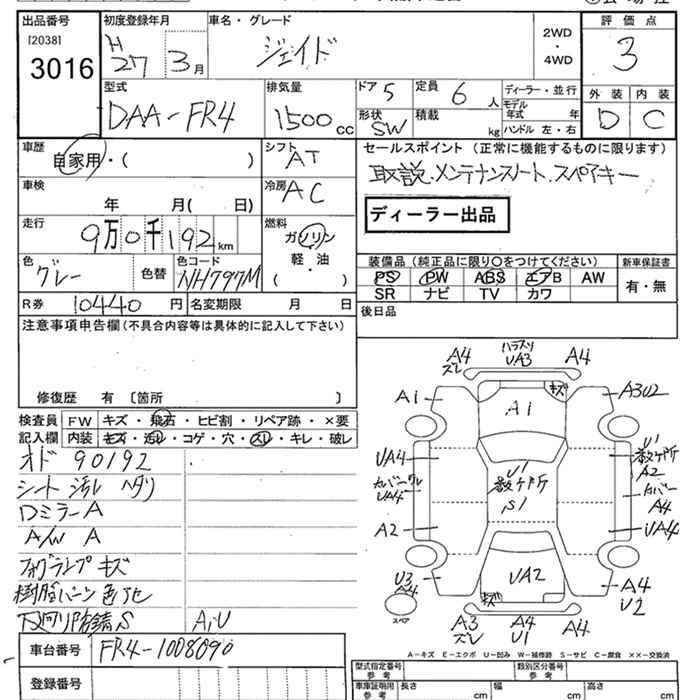 出品番号
[2038]
3016
初度登録年月
H
27 3月
車名・グレード
ジェイド
2WD
・
4WD
評価点
3
型式
DAA-FR4
排気量
1500cc
ドア 5
形状 SW
定員 6人
積載 kg
ディーラー・並行
モデル年式 年
ハンドル 左・右
外装 内装
D C
車歴
自家用・( )
シフト
AT
セールスポイント(正常に機能するものに限ります)
取説・メンテナンスノート・スペアキー
車検
年 月( 日)
冷房
AC
ディーラー出品
走行
9万0千192km
燃料
ガソリン
軽・油
・
( )
色
グレー
色替
色コード
NH797M
装備品(純正品に限り〇をつけてください)
新車保証書
PS PW ABS エアB AW
SR ナビ TV カワ
有・無
R券 10440円 名変期限 月 日
後日品
注意事項申告欄(不具合内容等は具体的に記入して下さい)
修復歴 有 〔箇所 〕
検査員
記入欄
FW キズ・飛石・ヒビ割・リペア跡・×要
内装 キズ・汚れ・コゲ・穴・スレ・キレ・破レ
オド 90192
シート 汚れ ヘタリ
Dミラー A
A/W A
フォグランプ キズ
樹脂パーツ 色アセ
下回り 錆 S
AiU
車台番号 FR4-1008090
登録番号
A4
ズレ
UA3
A4
A1
A1
キズ
A3U2
UA4
UA4
U1
数ヶ所
S1
U1
数ヶ所
A2
A4
UA4
A2
U3
A4
UA2
キズ
A4
U2
スペア
A3
ズレ
A4
U1
A4
A-キズ E-エクボ U-凹み W-補修跡 S-サビ C-腐食 ××-交換済
型式指定番号
参考
類別区分番号
参考
車庫証明用
参考
長さ cm
幅 cm
高さ cm